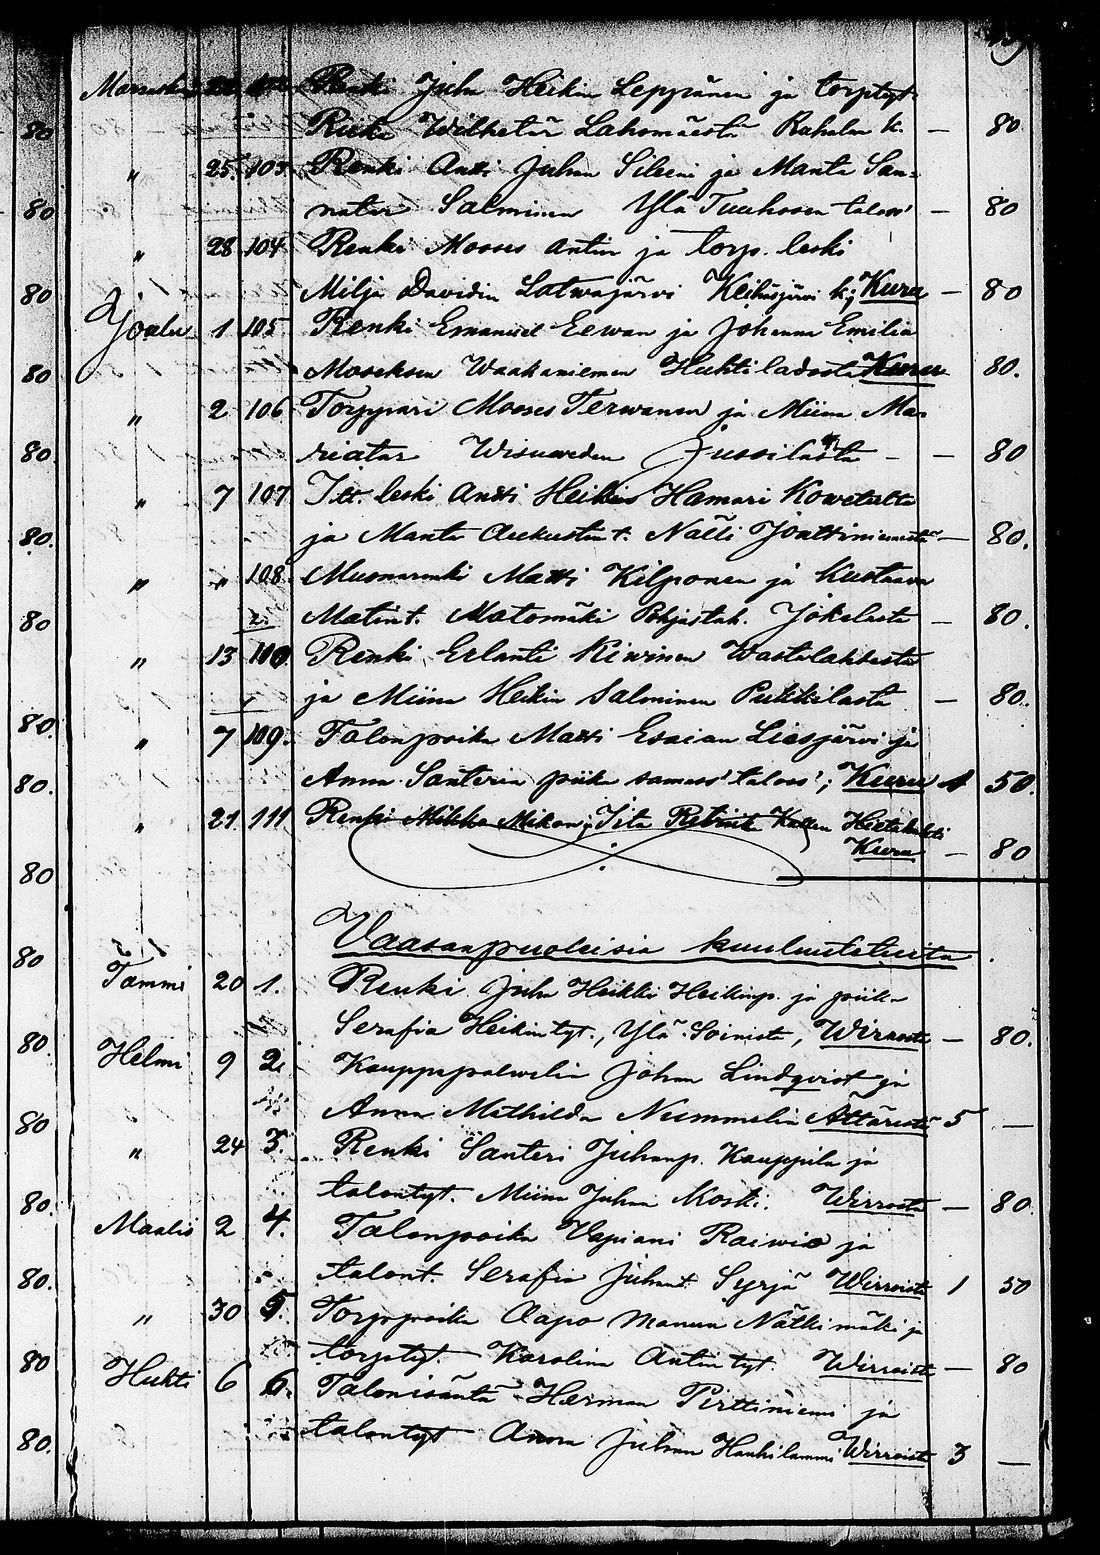 Renki Juha Heikin Leppänen ja torptyt.
80 Riika Wilhelm Lahomäestä Rahalan k. — 80
" 25. 103. Renki Antti Juhan Sileeni ja Manta San-
80 Salminen Ylä Tuuhosen taloss' — 80
" 28 104 Renki Mooses Antin ja torp. leski
80 Milja Davidin Latwajärvi Keihäsjärvi k; Kuru — 80
Joulu 1 105 Renki Emanuel Eewan ja Johanna Emilia
80 Mooseksen Waakaniemen Huhtiladosta Kuru 80.
" 2 106 Torppari Mooses Terwanen ja Miina Ma-
80. riatar Wisuweden Jussilasta — — 80
" 7 107 Itt. leski Antti Heikin Hamari Kowelalta
80. ja Manta Aukustin t. Nälli Joattiniemestä — 80.
" " 108. Muonarenki Matti Kilponen ja Kustaava
80 Matin t. Matomäki Pohjastah. Jokelasta — 80.
" 13 110 Renki Erlanti Kiwinen Wastilahdesta
ja Miina Heikin Salminen Pukkilasta — 80.
80. " 7 109. Talonpoika Matti Esaian Liesjärvi ja
80. Anna Santerin piika samass' taloss'; Kuru 1 50.
" 21 111 Renki Mikko Mikon; Ita Kallen
80 Kuru — 80
Vaasanpuoleisia kuulustetuita
80 Tammi 20 1. Renki Juha Heikki Heikinp. ja piika
80. Serafia Heikintyt., Ylä Soinista, Wirroista — 80.
Helmi 9 2. Kauppapalwelia Johan Lindqvist ja
80 Anna Mathilda Nummelin Ättäristä 5 —
" 24 3. Renki Santeri Juhanp. Kauppila ja
80. talontyt. Miina Juhan Koski. Wirroista — 80
Maalis 2 4. Talonpoika Vapiani Raiwio ja
80. talont. Serafia Juhan t. Syrjä Wirroista 1 50
" 30 5. Torppoika Aapo Manun Nälkimäki ja
80 torptyt. Karolina Antin tyt. Wirroista — 80
Huhti 6 6. Talonisäntä Herman Pirttiniemi ja
80. talontyt Anna Juhan Hankilammi Wirroista 3 —